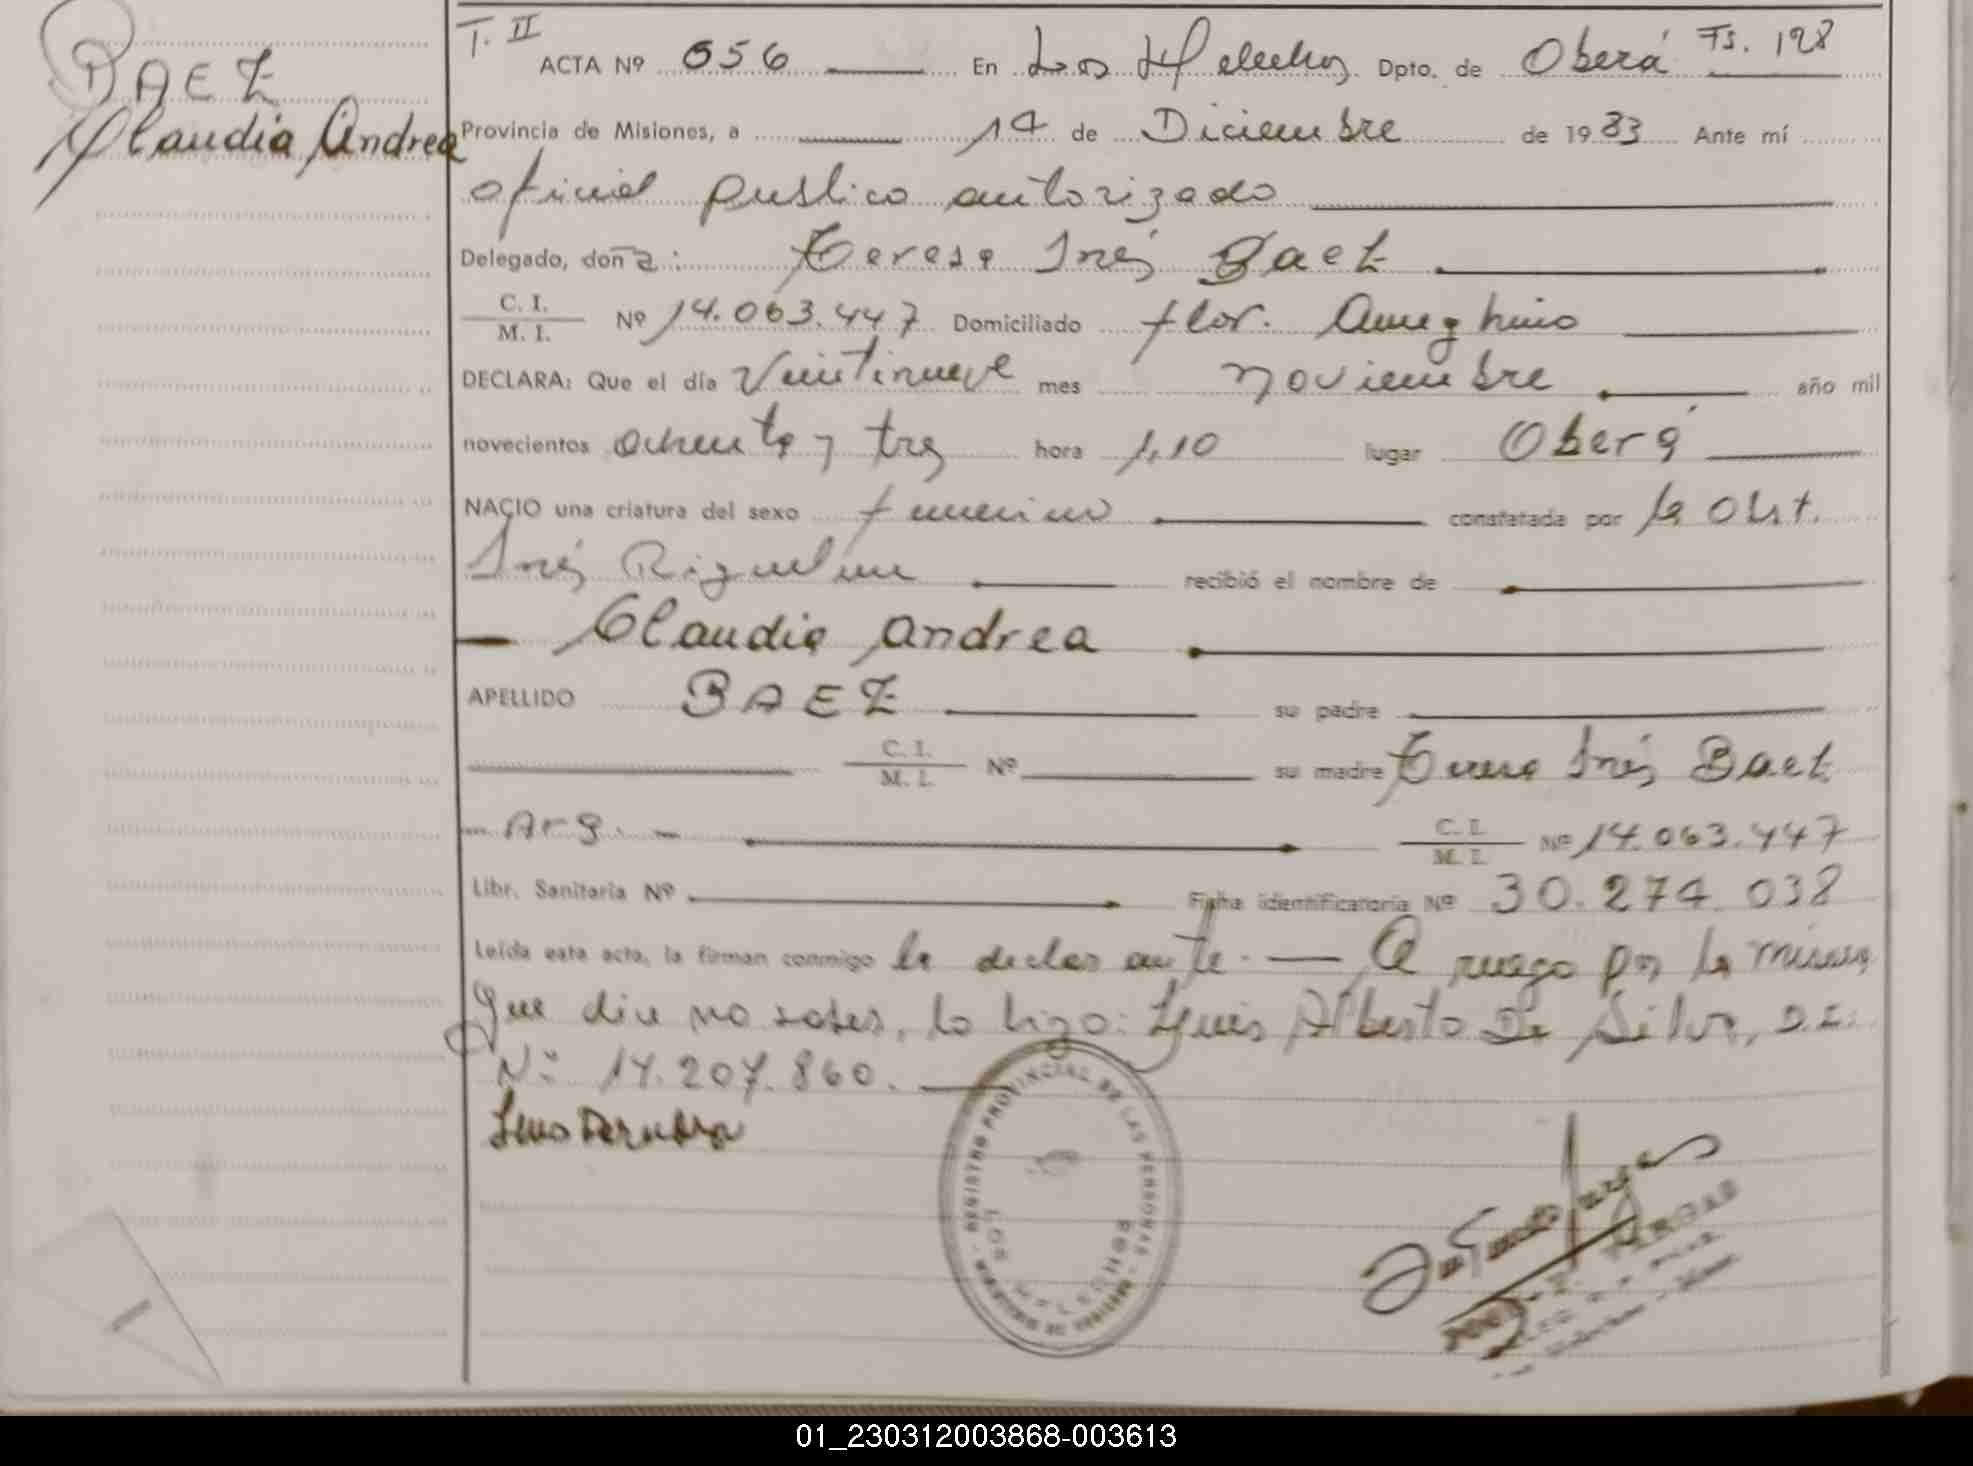 BAEZ
Claudia Andrea
T. II
ACTA Nº 656 En Los Helechos Dpto. de Oberá Fs. 128
Provincia de Misiones, a 14 de Diciembre de 1983 Ante mí
oficial publico autorizado
Delegado, doña: Teresa Inés Baez
C. I. / M. I. Nº 14.063.447 Domiciliado flor. Ameghino
DECLARA: Que el día Veintinueve mes noviembre año mil
novecientos ochenta y tres hora 1,10 lugar Oberá
NACIO una criatura del sexo femenino constatada por la Obst.
Inés Riquelme recibió el nombre de
Claudia Andrea
APELLIDO BAEZ su padre
C. I. / M. I. Nº su madre Teresa Inés Baez
Arg. C. I. / M. I. Nº 14.063.447
Libr. Sanitaria Nº Ficha identificatoria Nº 30.274.038
Leída esta acta, la firman conmigo la declarante. A ruego por la misma
que dice no saber, lo hizo: Luis Alberto Da Silva, D.I.
Nº 14.207.860.
REGISTRO PROVINCIAL DE LAS PERSONAS
LOS HELECHOS
VARGAS
01_230312003868-003613